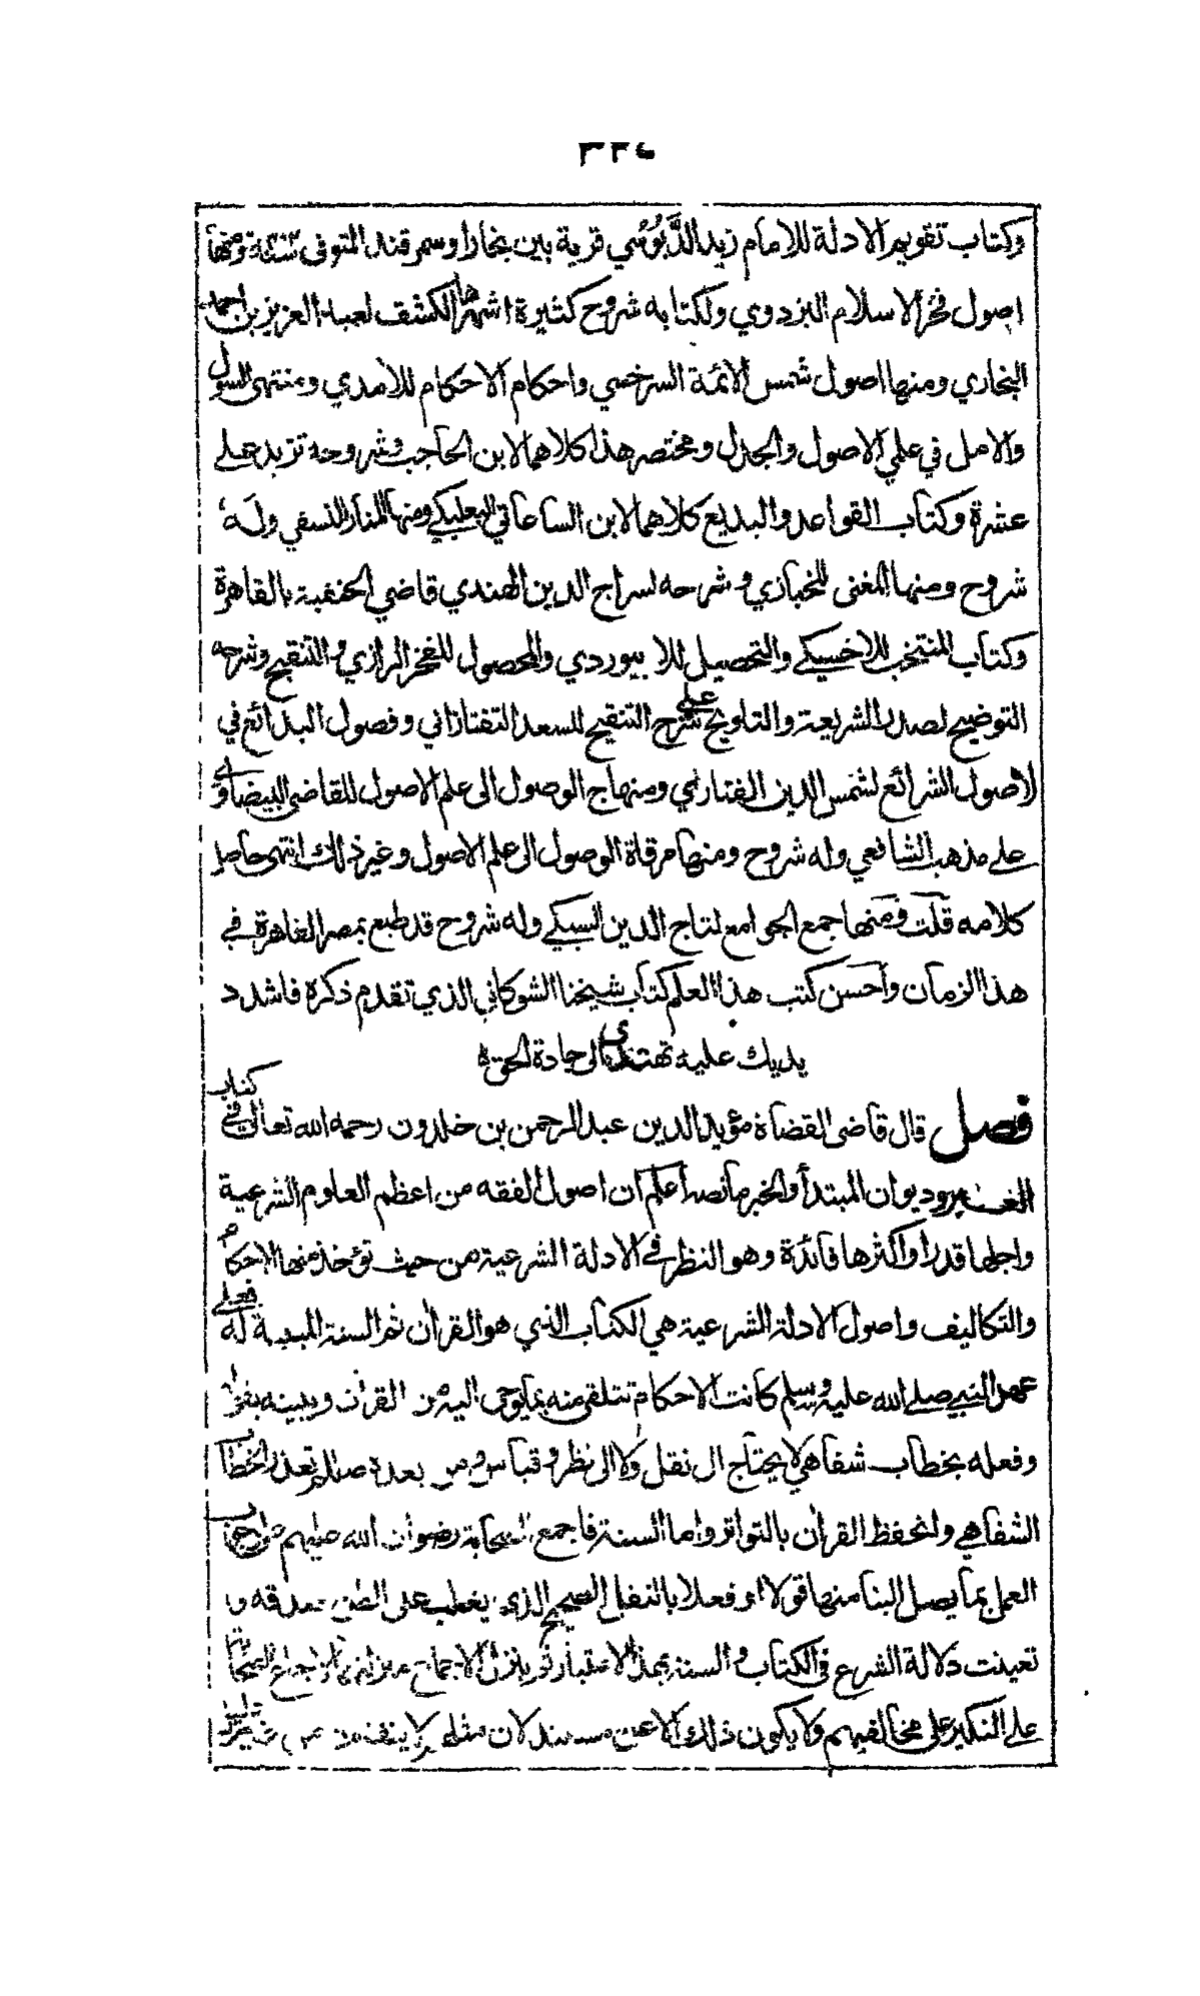 ٣٢٤
وكتاب تقويم الادلة للامام زيد الدَّبُوْسي قرية بين بخارا وسمرقند المتوفى سنة ومنها
اصول فخر الاسلام البزدوي ولكتابه شروح كثيرة اشهرها الكشف لعبد العزيز بن احمد
البخاري ومنها اصول شمس الائمة السرخسي واحكام الاحكام للآمدي ومنتهى السول
والامل في علمي الاصول والجدل ومختصر هذا كلاهما لابن الحاجب وشروحه تزيد على
عشرة وكتاب القواعد والبديع كلاهما لابن الساعاتي البعلبكي ومنها المنار للنسفي وله
شروح ومنها المغنى للخبازي وشرحه لسراج الدين الهندي قاضي الحنفية بالقاهرة
وكتاب المنتخب للاخسيكي والتحصيل للابيوردي والمحصول للفخر الرازي والتنقيح وشرحه
التوضيح لصدر الشريعة والتلويح على شرح التنقيح للسعد التفتازاني وفصول البدائع في
لاصول الشرائع لشمس الدين الفناري ومنهاج الوصول الى علم الاصول للقاضي البيضاوي
على مذهب الشافعي وله شروح ومنها مرقاة الوصول الى علم الاصول وغير ذلك انتهى حاصل
كلامه قلت ومنها جمع الجوامع لتاج الدين السبكي وله شروح قد طبع بمصر القاهرة في
هذا الزمان وأحسن كتب هذا العلم كتاب شيخنا الشوكاني الذي تقدم ذكره فاشدد
يديك عليه تهتدي الى جادة الحق
فصل قال قاضى القضاة مؤيد الدين عبد الرحمن بن خلدون رحمه الله تعالى في كتاب
العبر وديوان المبتدأ والخبر ما نصه أعلم ان اصول الفقه من اعظم العلوم الشرعية
واجلها قدرا واكثرها فائدة وهو النظر في الادلة الشرعية من حيث تؤخذ منها الاحكام
والتكاليف واصول الادلة الشرعية هي الكتاب الذي هو القرآن ثم السنة المبينة له فعلى
عهد النبي صلى الله عليه وسلم كانت الاحكام تتلقى منه بما يوحى اليه من القرآن ويبينه بقوله
وفعله بخطاب شفاهي لا يحتاج الى نقل ولا الى نظر وقياس ومن بعده صللم تعذر الخطاب
الشفاهي وانحفظ القرآن بالتواتر واما السنة فاجمع الصحابة رضوان الله عليهم على وجوب
العمل بما يصل الينا منها قولا او فعلا بالنقل الصحيح الذي يغلب على الظن صدقه و
تعينت دلالة الشرع في الكتاب والسنة بهذا الاعتبار ثم ينزل الاجماع منزلتهما لاجماع الصحابة
على النكير على مخالفيهم ولا يكون ذلك الا عن مستند لان مثلهم لا يتفقون من غير